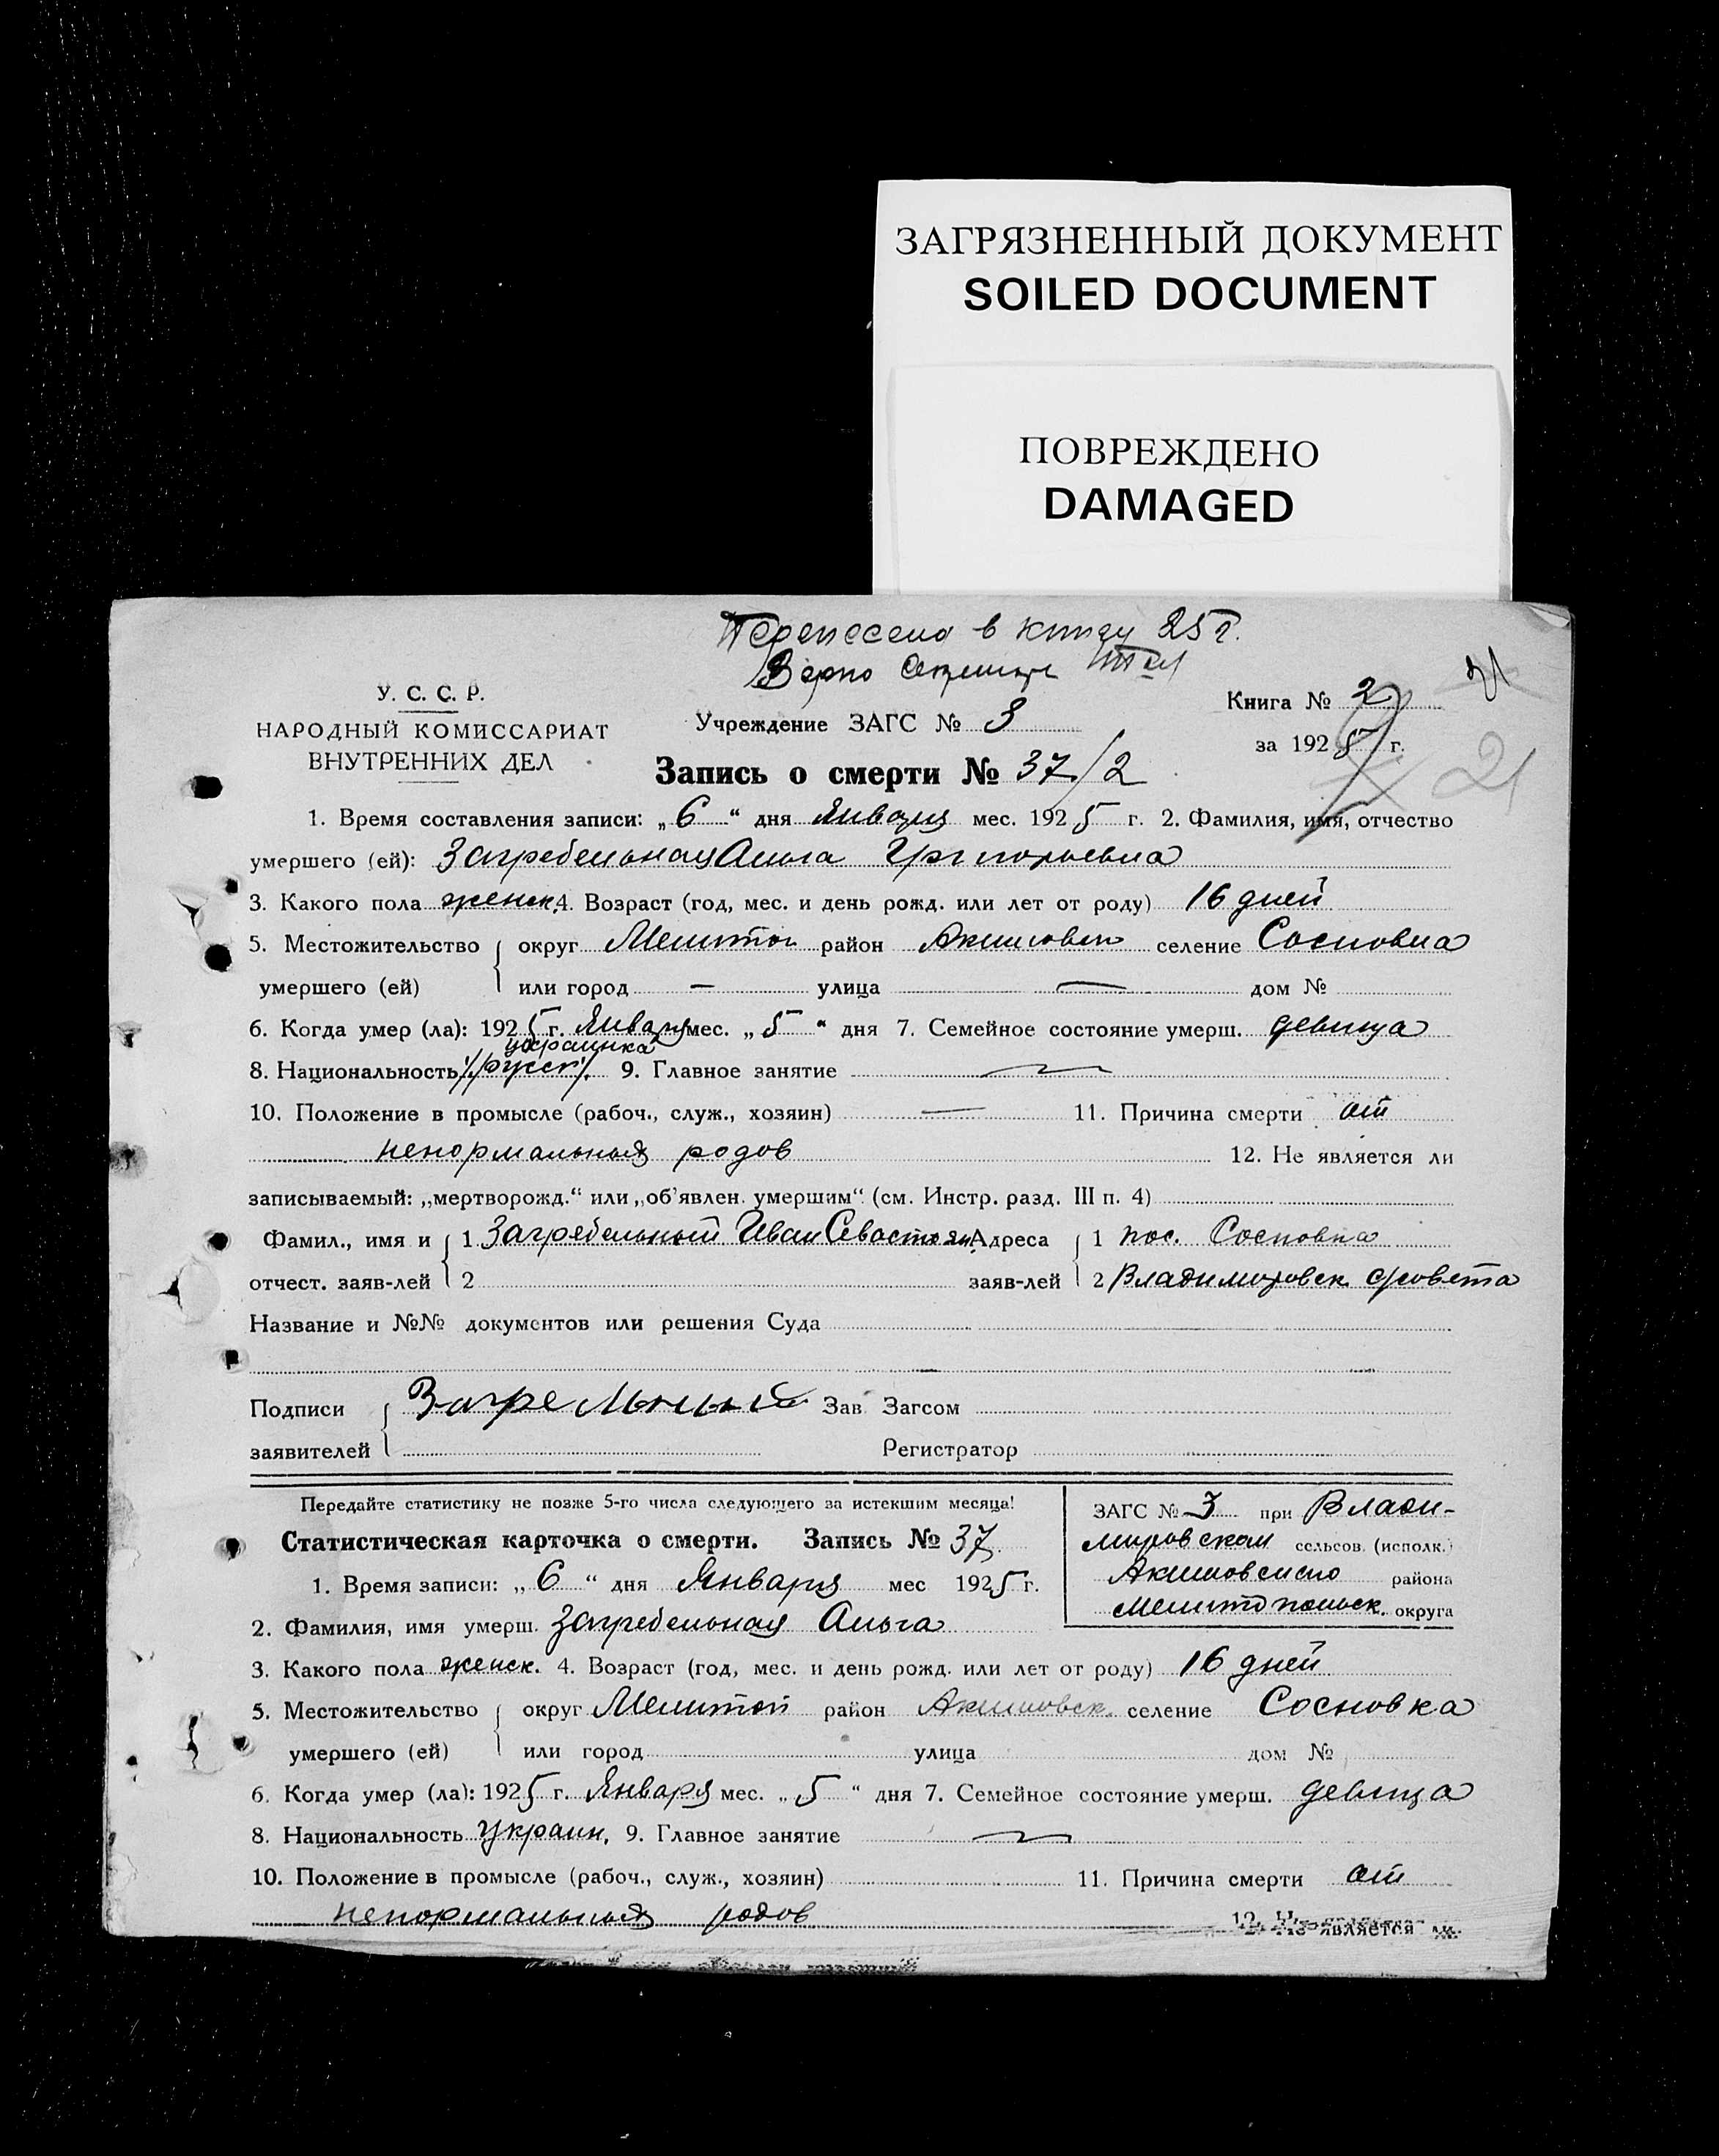 ЗАГРЯЗНЕННЫЙ ДОКУМЕНТ
SOILED DOCUMENT
ПОВРЕЖДЕНО
DAMAGED
Перенесено в книгу 25 г.
Верно
21
У. С. С. Р.
НАРОДНЫЙ КОМИССАРИАТ
ВНУТРЕННИХ ДЕЛ
Учреждение ЗАГС № 3
Книга № 2
за 1925 г.
21
Запись о смерти № 37/2
1. Время составления записи: „6“ дня Января мес. 1925 г. 2. Фамилия, имя, отчество
умершего (ей): Загребельная Ольга Григорьевна
3. Какого пола женск. 4. Возраст (год, мес. и день рожд. или лет от роду) 16 дней
5. Местожительство округ Мелитоп район Акимовск селение Сосновка
умершего (ей) или город — улица — дом №
6. Когда умер (ла): 1925 г. Января мес. „5“ дня 7. Семейное состояние умерш. девица
украинка
8. Национальность /русск/. 9. Главное занятие —
10. Положение в промысле (рабоч., служ., хозяин) — 11. Причина смерти от
ненормальных родов 12. Не является ли
записываемый: „мертворожд.“ или „об'явлен. умершим“ (см. Инстр. разд. III п. 4)
Фамил., имя и 1 Загребельный Иван Севастьян. Адреса 1 пос. Сосновка
отчест. заяв-лей 2 заяв-лей 2 Владимировск с/совета
Название и №№ документов или решения Суда
Подписи Загреельный Зав Загсом
заявителей Регистратор
Передайте статистику не позже 5-го числа следующего за истекшим месяца!
Статистическая карточка о смерти. Запись № 37
ЗАГС № 3 при Влади-
мировском сельсов. (исполк.)
Акимовского района
Мелитопольск. округа
1. Время записи: „6“ дня Января мес 1925 г.
2. Фамилия, имя умерш. Загребельная Ольга
3. Какого пола женск. 4. Возраст (год, мес. и день рожд. или лет от роду) 16 дней
5. Местожительство округ Мелитоп район Акимовск. селение Сосновка
умершего (ей) или город улица дом №
6. Когда умер (ла): 1925 г. Января мес. „5“ дня 7. Семейное состояние умерш. девица
8. Национальность Украин. 9. Главное занятие —
10. Положение в промысле (рабоч., служ., хозяин) 11. Причина смерти от
ненормальных родов 12. Не является ли